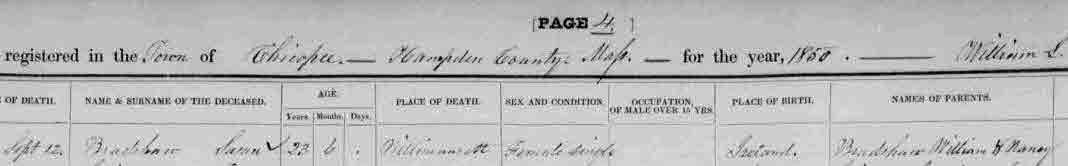 [PAGE 4 ]
registered in the Town of Chicopee — Hampden County Mass. — for the year, 1850. — William L.
E OF DEATH. NAME & SURNAME OF THE DECEASED. AGE. PLACE OF DEATH. SEX AND CONDITION. OCCUPATION, OF MALE OVER 15 YRS. PLACE OF BIRTH. NAMES OF PARENTS.
Years. Months. Days.
Sept 12. Bradshaw Susan 23 6 . Willimansett Female single Ireland. Bradshaw William & Nancy